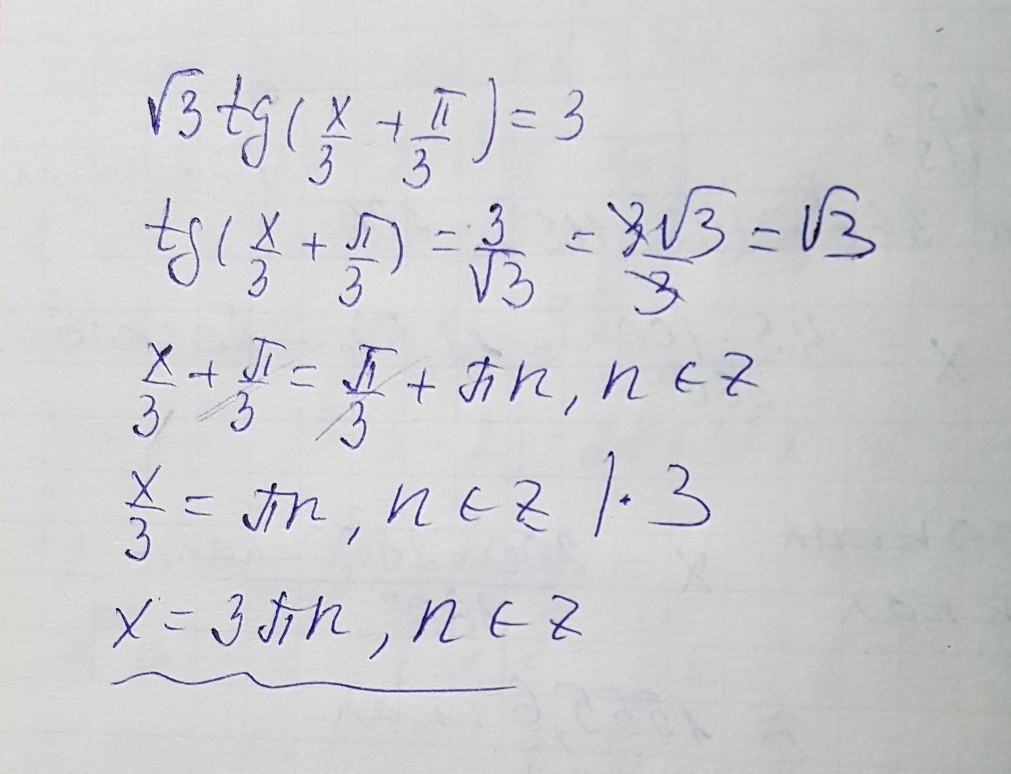 √3 tg(x/3 + π/3) = 3
tg(x/3 + π/3) = 3/√3 = 3√3/3 = √3
x/3 + π/3 = π/3 + πn, n ∈ Z
x/3 = πn, n ∈ Z |·3
x = 3πn, n ∈ Z